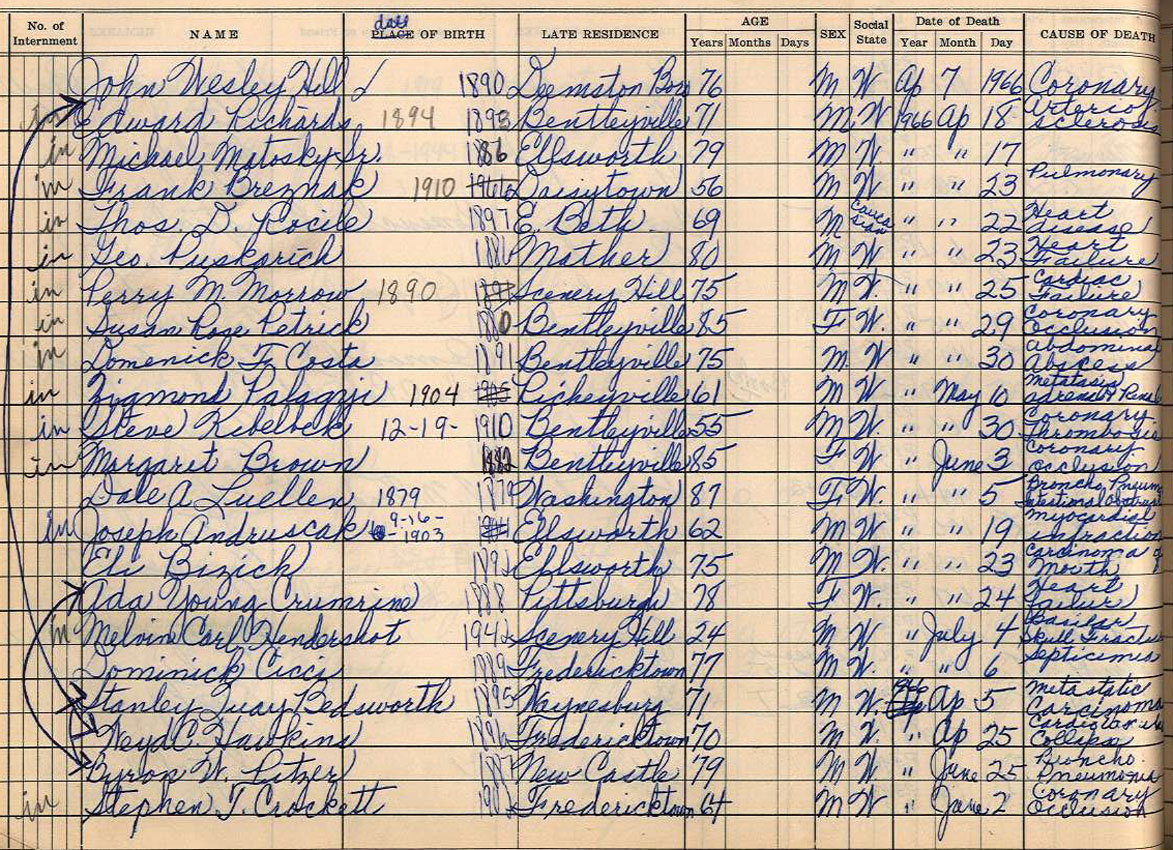 No. of Internment NAME date PLACE OF BIRTH LATE RESIDENCE AGE Years Months Days SEX Social State Date of Death Year Month Day CAUSE OF DEATH
John Wesley Hill 1890 Deemston Boro 76 M W Ap 7 1966 Coronary
in Edward Richards 1894 1893 Bentleyville 71 M W 1966 Ap 18 Arterio sclerosis
in Michael Matosky Sr. 1886 Ellsworth 79 M W " " 17
in Frank Breznak 1910 Daisytown 56 M W " " 23 Pulmonary
in Thos. D. 1897 E. Beth 69 M Cauca sian " " 22 Heart disease
in Geo. Puskarich 1886 Mather 80 M W " " 23 Heart Failure
in Perry M. Morrow 1890 Scenery Hill 75 M W. " " 25 Cardiac Failure
in Susan Rose Petrick 1880 Bentleyville 85 F W. " " 29 Coronary Occlusion
in Domenick F. Costa 1891 Bentleyville 75 M. W " " 30 Abdominal Abscess
in Zigmond Palagyi 1904 1905 Richeyville 61 M W " May 10 Metatasis adrenal Renal
in Steve 12-19- 1910 Bentleyville 55 M W. " " 30 Coronary Thrombosis
in Margaret Brown 1882 Bentleyville 85 F W " June 3 Coronary Occlusion
Dale A. Luellen 1879 1879 Washington 87 F W. " " 5 Broncho Pneum Intestinal Obstruc
in Joseph Andruscak 9-16-1903 1904 Ellsworth 62 M W " " 19 myocardial infraction
Eli Bizick 1892 Ellsworth 75 M W. " " 23 Carcinoma of Mouth
Ada Young Crumrine 1888 Pittsburgh 78 F W. " " 24 Heart Failure
in Melvin Carl Hendershot 1942 Scenery Hill 24 M W. " July 4 Basilar Skull Fracture
Dominick Cicci 1889 Fredericktown 77 M W. " " 6 Septicimia
Stanley Quay Bedsworth 1895 Waynesburg 71 M W. Ap 5 Metastatic Carcinoma
C. Hawkins 1896 Fredericktown 70 M W. " Ap 25 Collapse
Byron W. Litzer 1887 New Castle 79 M W " June 25 Broncho Pneumonia
in Stephen T. Crockett 1902 Fredericktown 64 M W " June 2 Coronary Occlusion